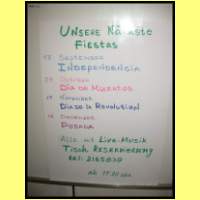 UNSERE NÄCHSTE
FIESTAS
SEPTEMBER
INDEPENDENCIA
OKTOBER
DIA DE MUERTOS
NOVEMBER
DIA DE LA REVOLUTION
DEZEMBER
POSADA
ALLE MIT LIVE-MUSIK
TISCH RESERVIERUNG
BEI
AB 19:00 UHR